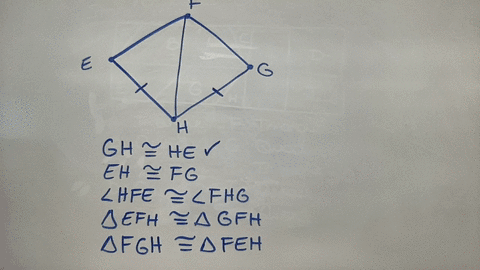 F
E
G
H
GH ≅ HE ✓
EH ≅ FG
∠HFE ≅ ∠FHG
△EFH ≅ △GFH
△FGH ≅ △FEH